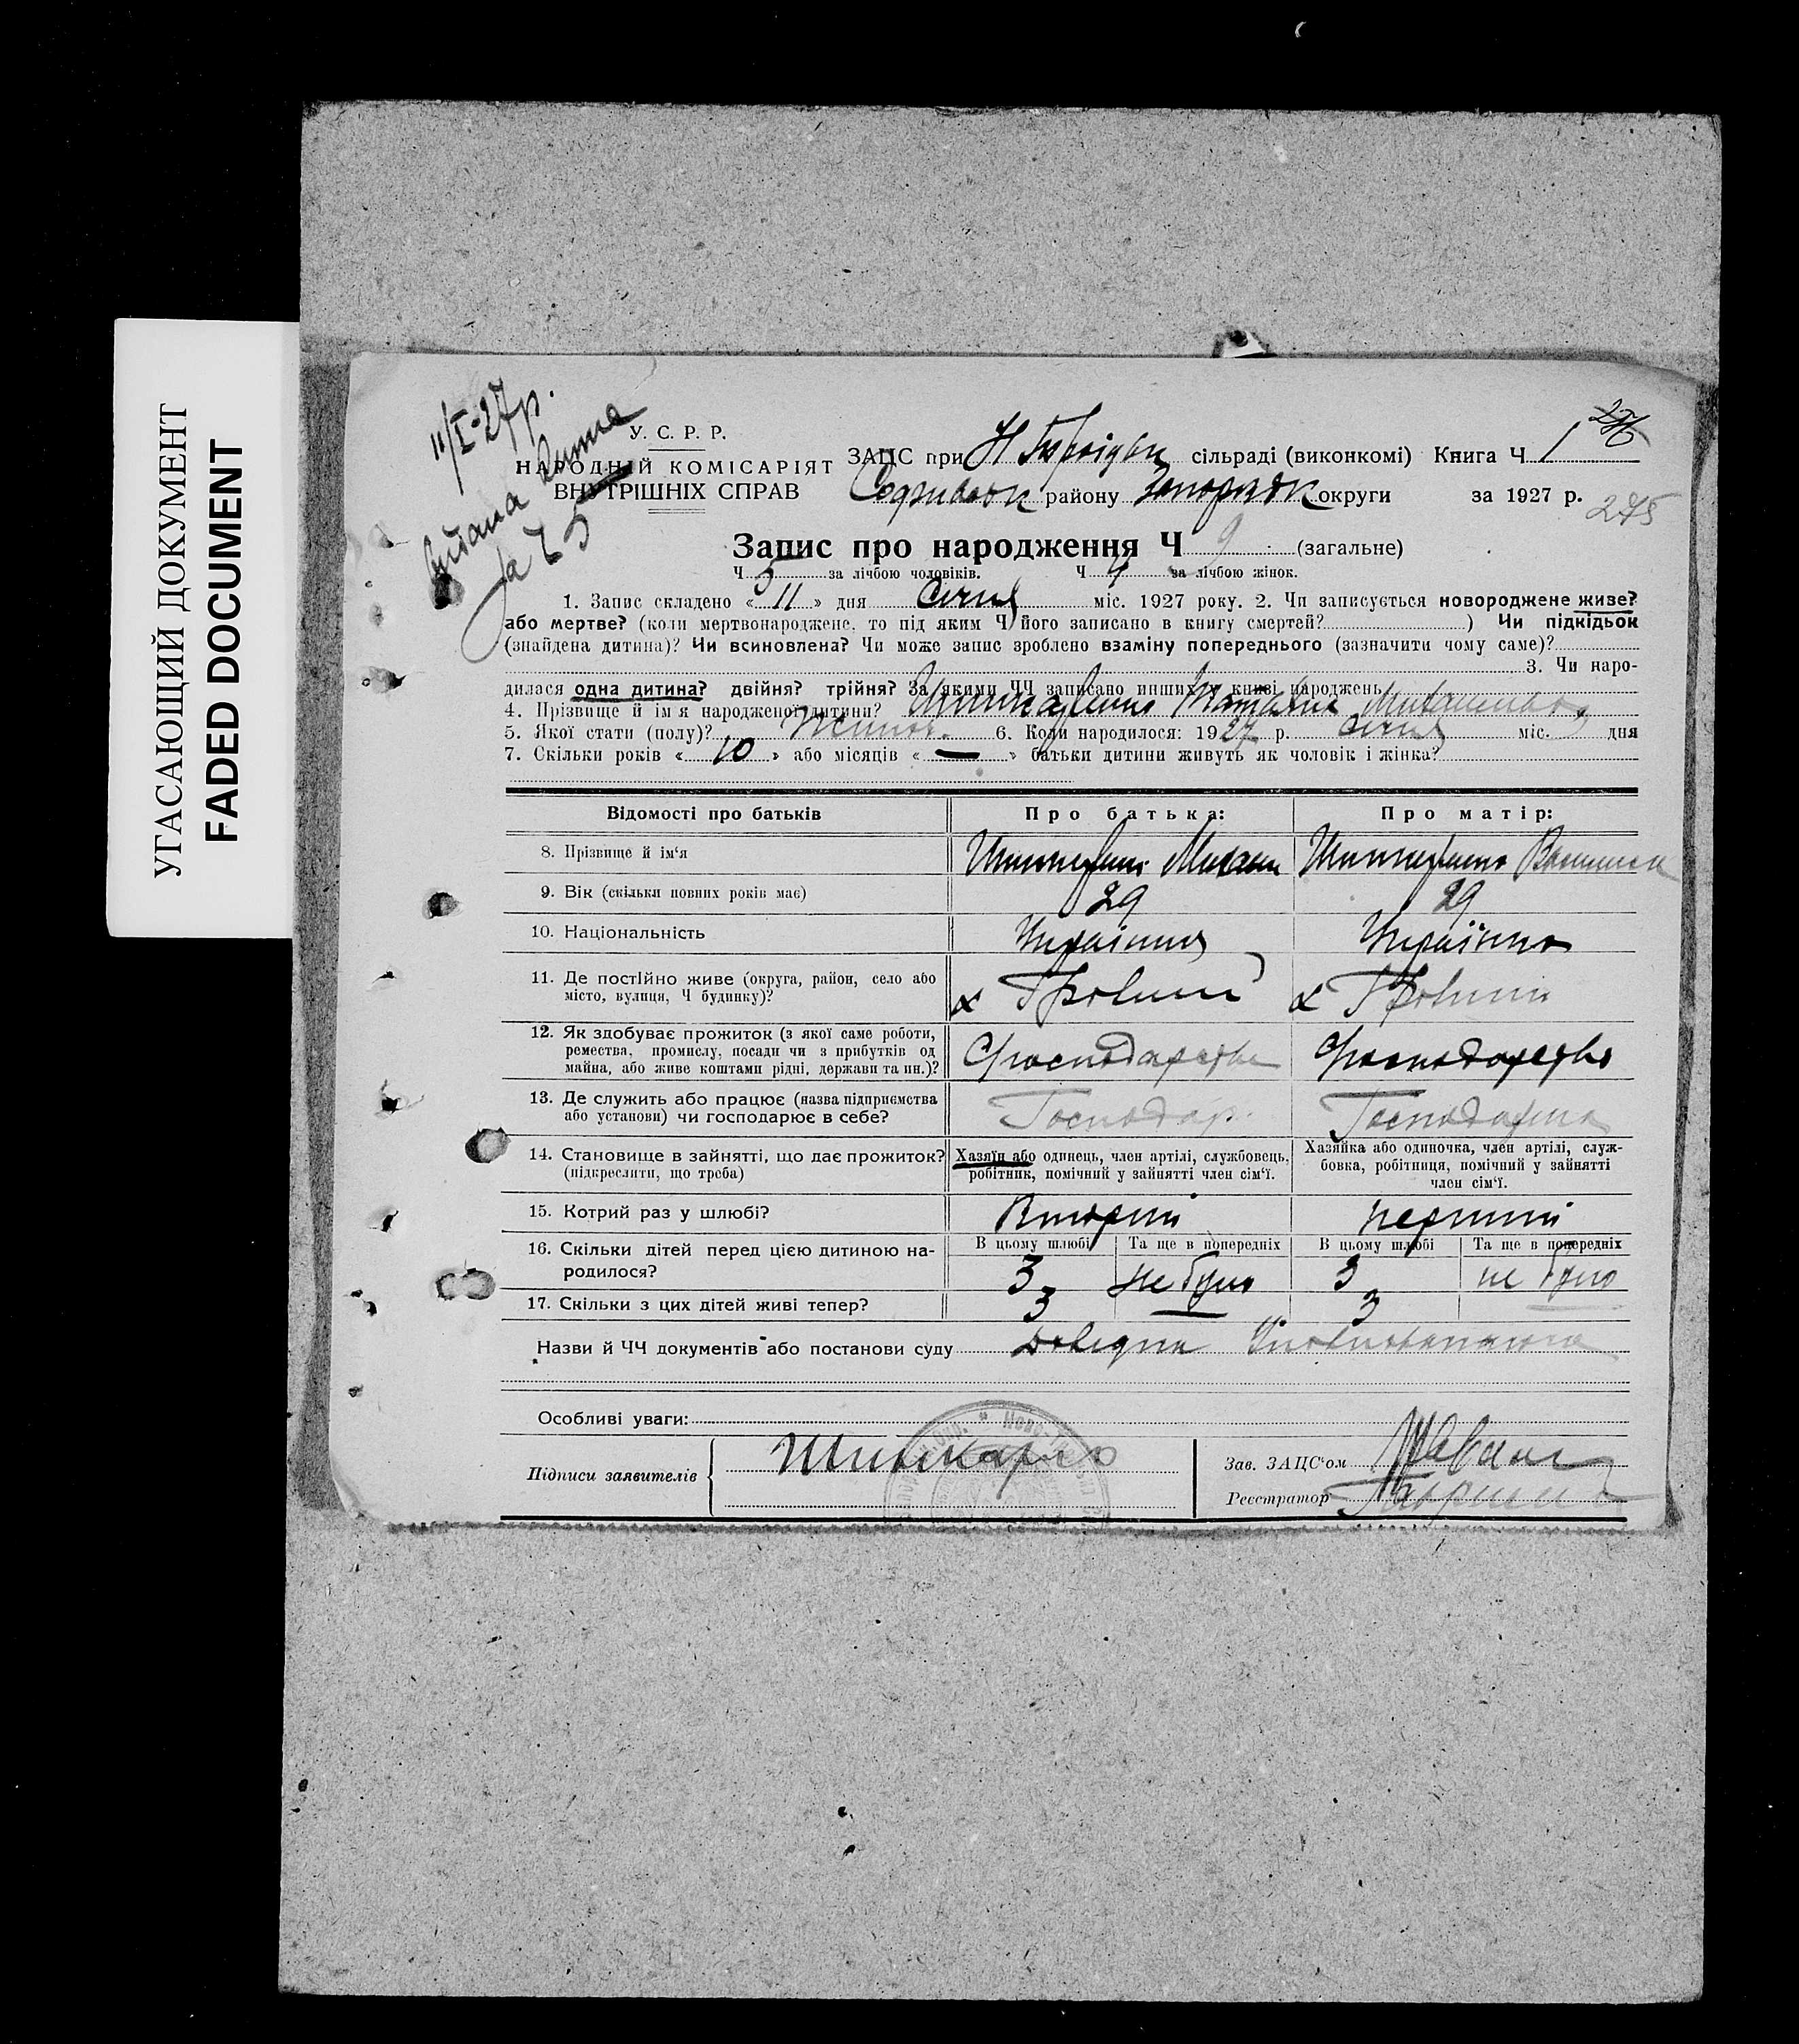 УГАСАЮЩИЙ ДОКУМЕНТ
FADED DOCUMENT
11/I-27р.
за Ч 5
У. С. Р. Р.
НАРОДНІЙ КОМІСАРІЯТ
ВНУТРІШНІХ СПРАВ
ЗАЦС при Н сільраді (виконкомі) Книга Ч 1
району округи за 1927 р.
275
Запис про народження Ч 9 (загальне)
Ч 5 за лічбою чоловіків. Ч 4 за лічбою жінок.
1. Запис складено « 11 » дня Січня міс. 1927 року. 2. Чи записується новороджене живе?
або мертве? (коли мертвонароджене, то під яким Ч його записано в книгу смертей? ) Чи підкідьок
(знайдена дитина)? Чи всиновлена? Чи може запис зроблено взаміну попереднього (зазначити чому саме)?
3. Чи наро-
дилася одна дитина? двійня? трійня? За якими ЧЧ записано инших у книзі народжень
4. Прізвище й ім'я народженої дитини? Шинкаренко Наталія Михайлівна
5. Якої стати (полу)? Жіноч. 6. Коли народилося: 1927 р. Січня міс. дня
7. Скільки років « 10 » або місяців « — » батьки дитини живуть як чоловік і жінка?
Відомості про батьків
Про батька:
Про матір:
8. Прізвище й ім'я
Шинкаренко Михайло
Шинкаренко Василиса
9. Вік (скільки повних років має)
29
29
10. Національність
Українец
Українка
11. Де постійно живе (округа, район, село або
місто, вулиця, Ч будинку)?
х
х
12. Як здобуває прожиток (з якої саме роботи,
ремества, промислу, посади чи з прибутків од
майна, або живе коштами рідні, держави та ин.)?
13. Де служить або працює (назва підприємства
або установи) чи господарює в себе?
Господар.
Господарка
14. Становище в зайнятті, що дає прожиток?
(підкреслити, що треба)
Хазяїн або одинець, член артілі, службовець,
робітник, помічний у зайнятті член сім'ї.
Хазяйка або одиночка, член артілі, служ-
бовка, робітниця, помічний у зайнятті
член сім'ї.
15. Котрий раз у шлюбі?
Вторий
перший
16. Скільки дітей перед цією дитиною на-
родилося?
В цьому шлюбі
Та ще в попередніх
В цьому шлюбі
Та ще в попередніх
3
не було
3
не було
17. Скільки з цих дітей живі тепер?
3
—
3
—
Назви й ЧЧ документів або постанови суду Довідка
Особливі уваги:
Підписи заявителів
Шинкарно
Зав. ЗАЦС'ом
Реєстратор